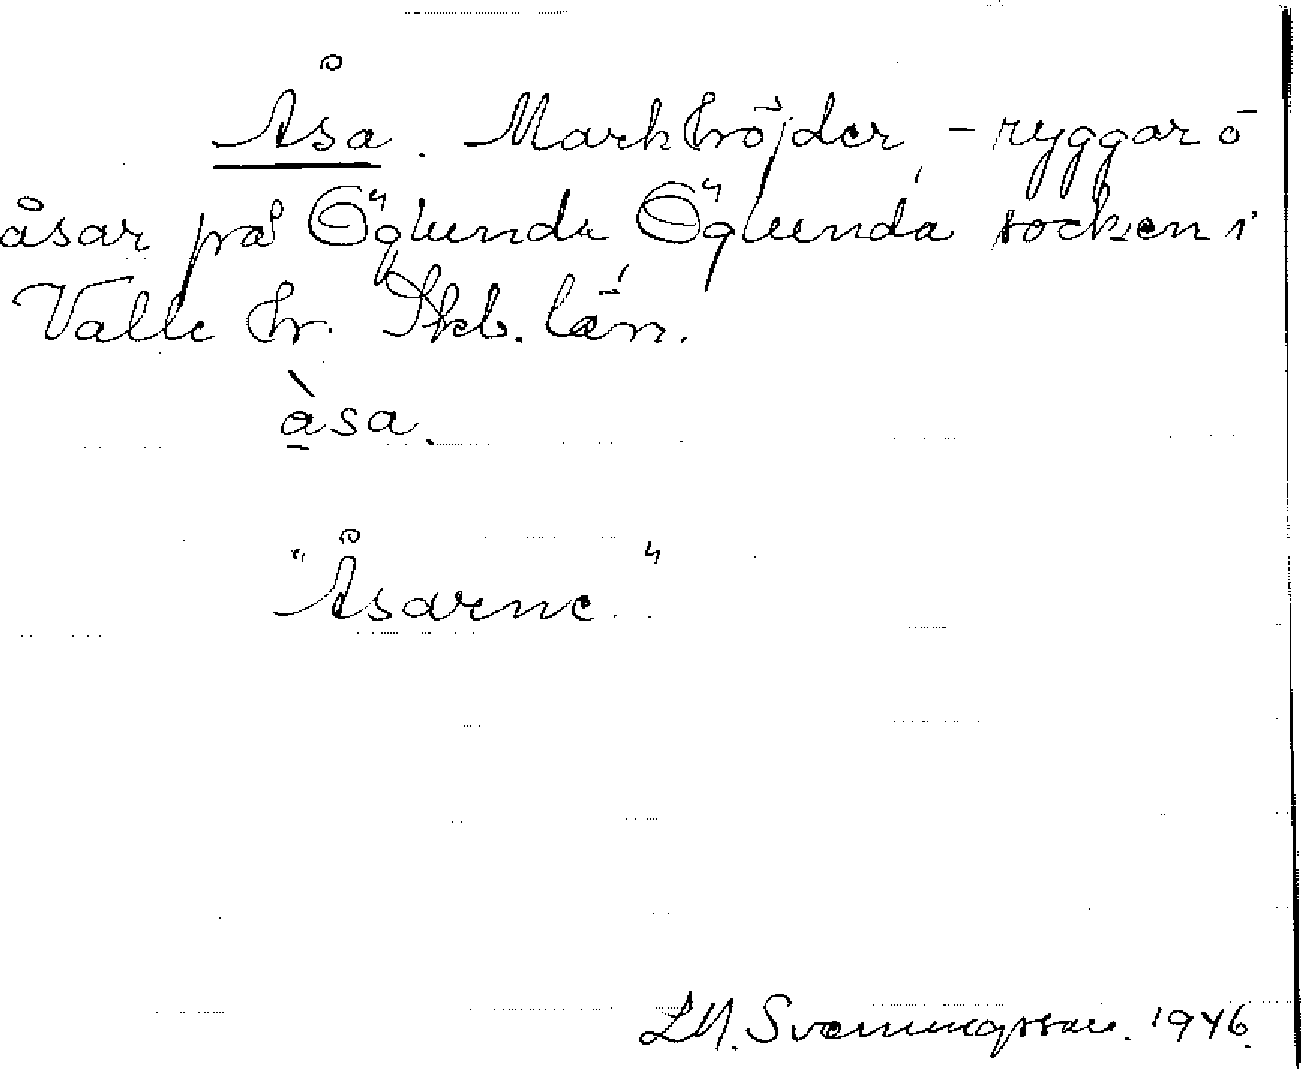 Åsa. Markhöjder, -ryggar o
åsar på Öglunda Öglunda socken i
Valle hr. Skb. län.
àsa.
"Åsarne."
L M. Svenningsson. 1946.